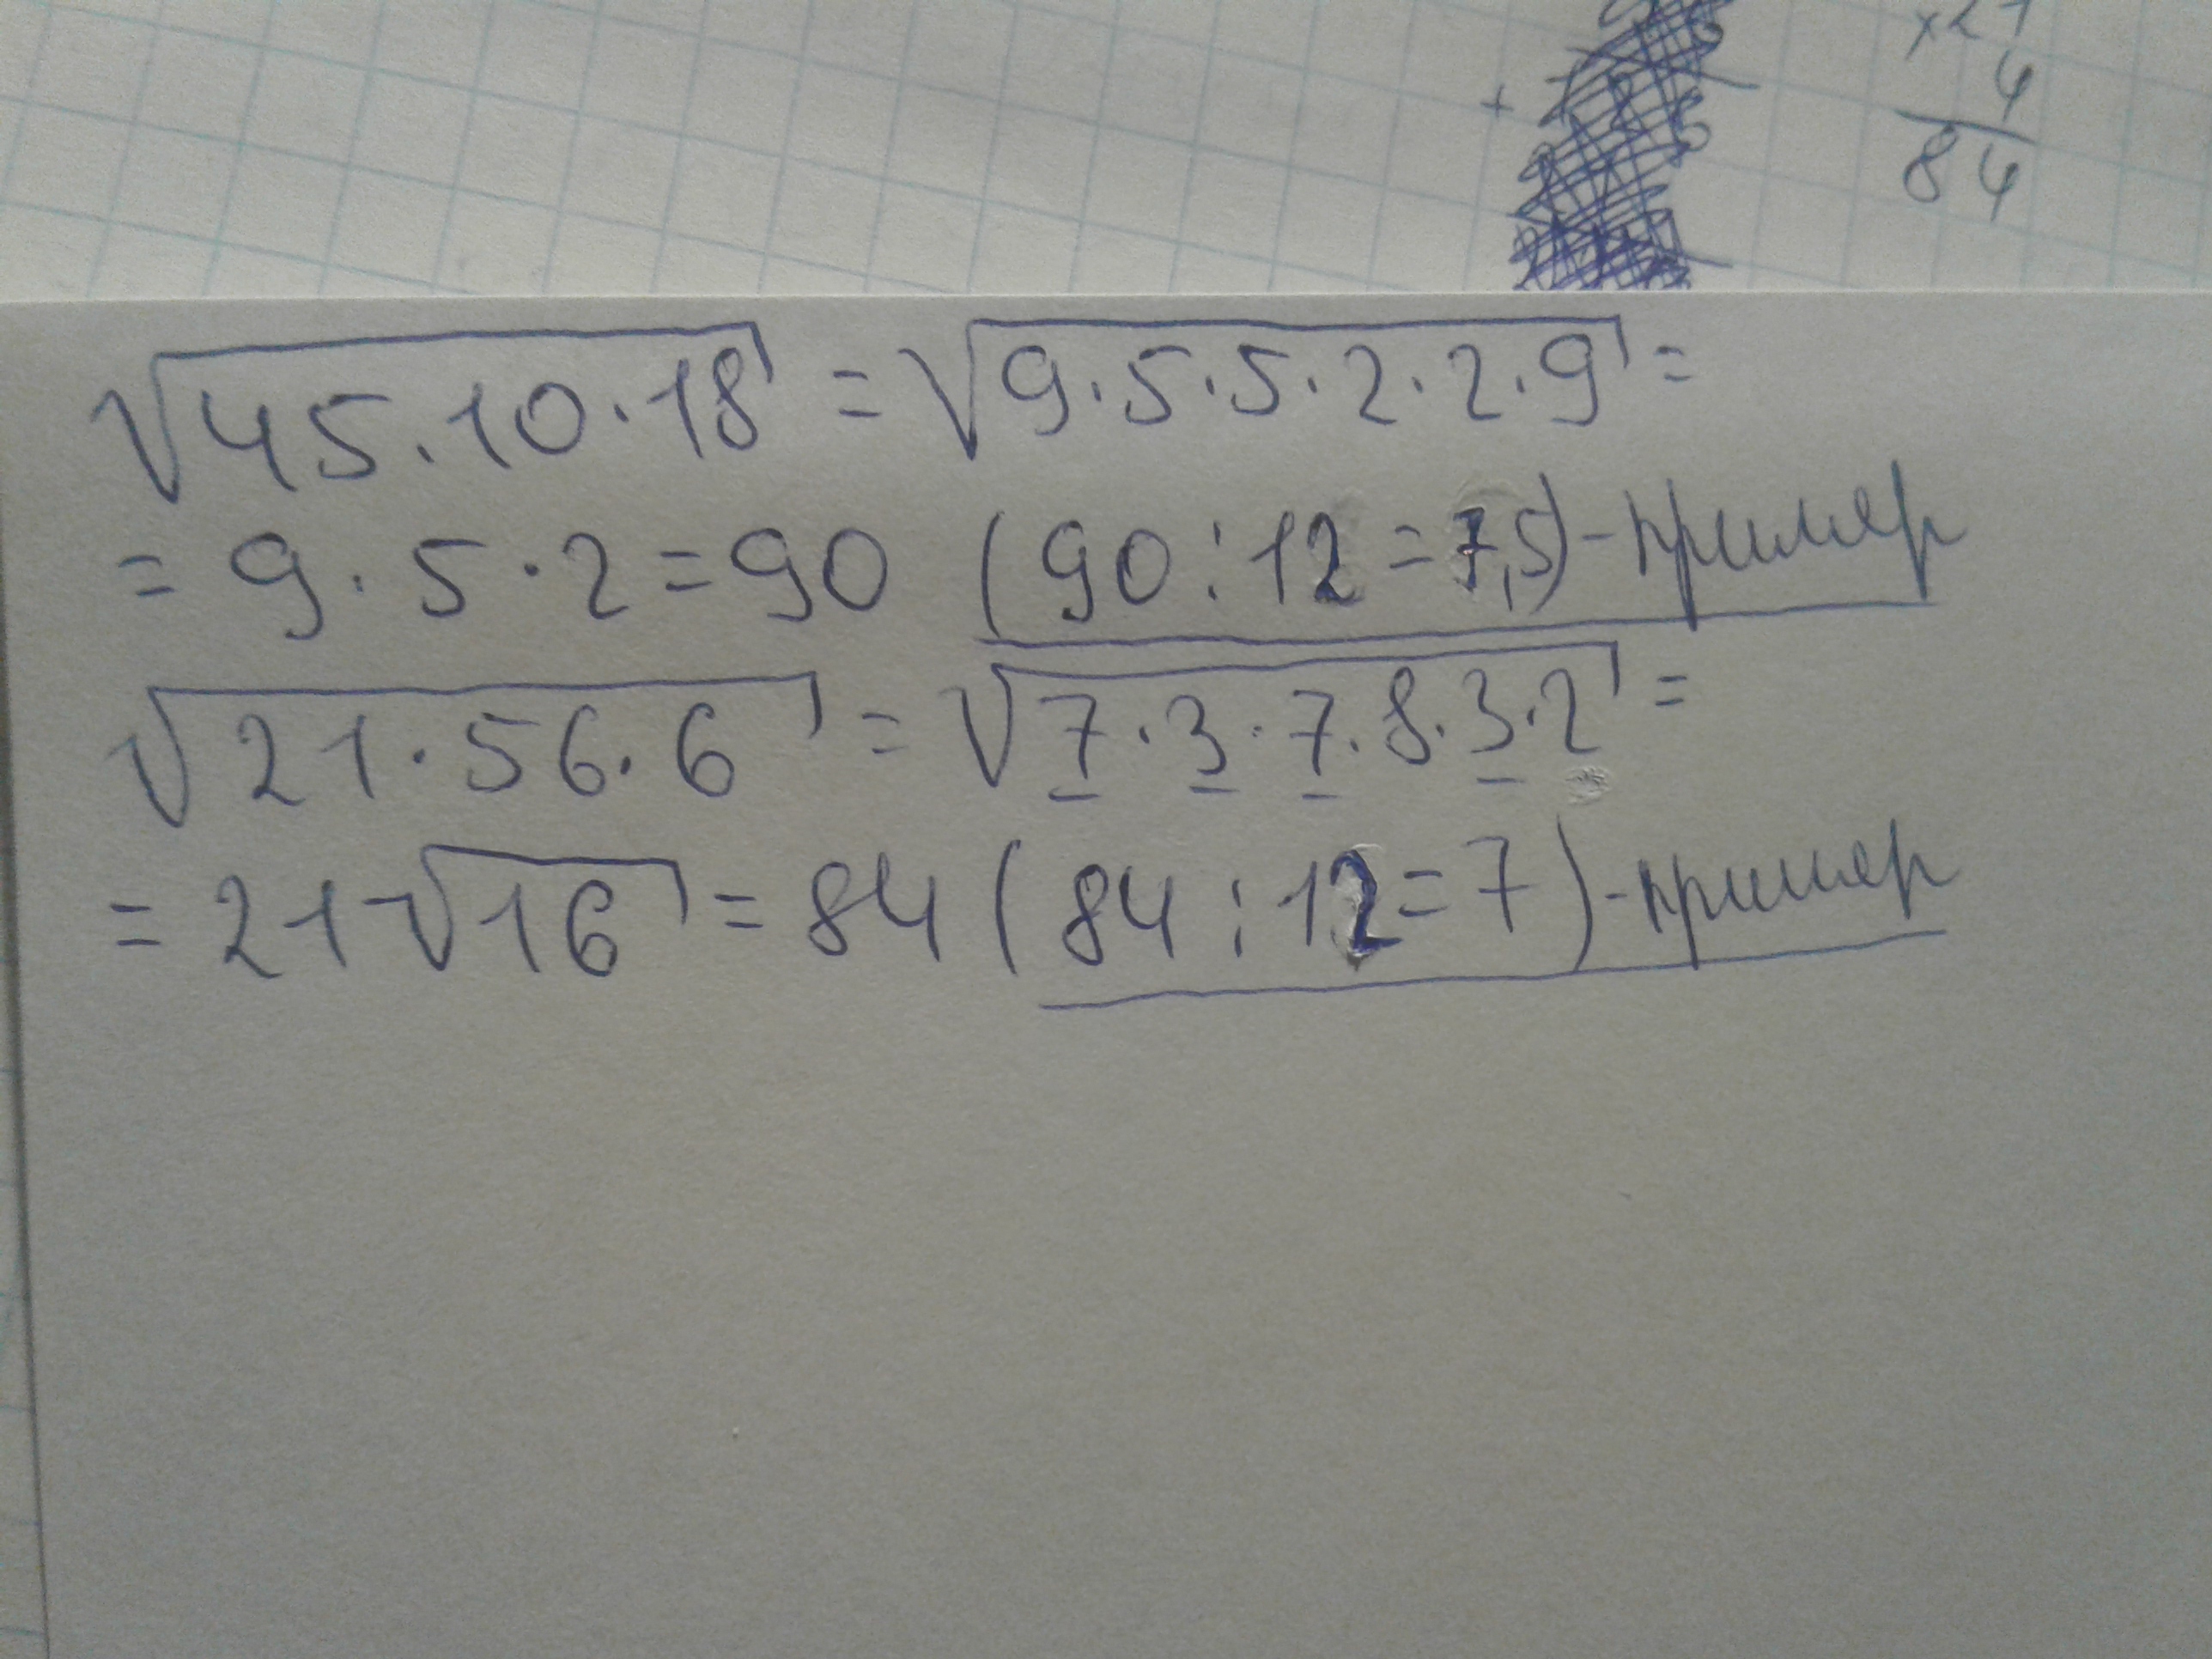 ×21
4
84
+
√45·10·18 = √9·5·5·2·2·9 =
= 9·5·2=90 (90:12=7,5)-пример
√21·56·6 = √7·3·7·8·3·2 =
= 21√16 = 84 (84:12=7)-пример